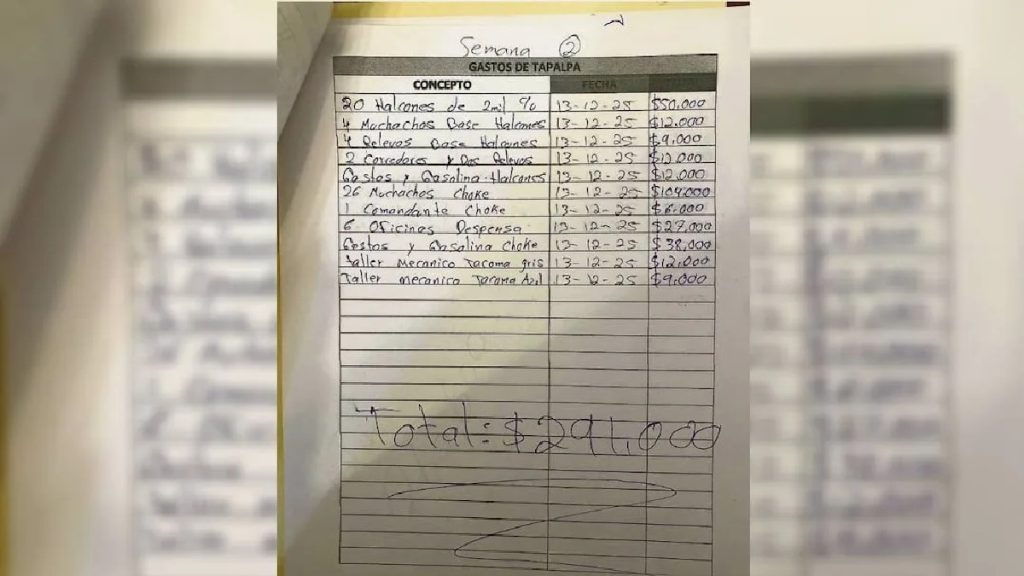 Semana 2
GASTOS DE TAPALPA
CONCEPTO FECHA
20 Halcones de 2mil % 13-12-25 $50.000
4 Muchachos Base Halcones 13-12-25 $12.000
4 Relevos Base Halcones 13-12-25 $9.000
2 Corredores y Dos Relevos 13-12-25 $12.000
Gastos y Gasolina Halcones 13-12-25 $12.000
26 Muchachos Choke 13-12-25 $104.000
1 Comandante Choke 13-12-25 $6.000
6 Oficinas Despensa 13-12-25 $27.000
Gastos y Gasolina Choke 13-12-25 $38,000
Taller Mecanico Tacoma gris 13-12-25 $12.000
Taller mecanico Tacoma Azul 13-12-25 $9.000
Total: $291,000